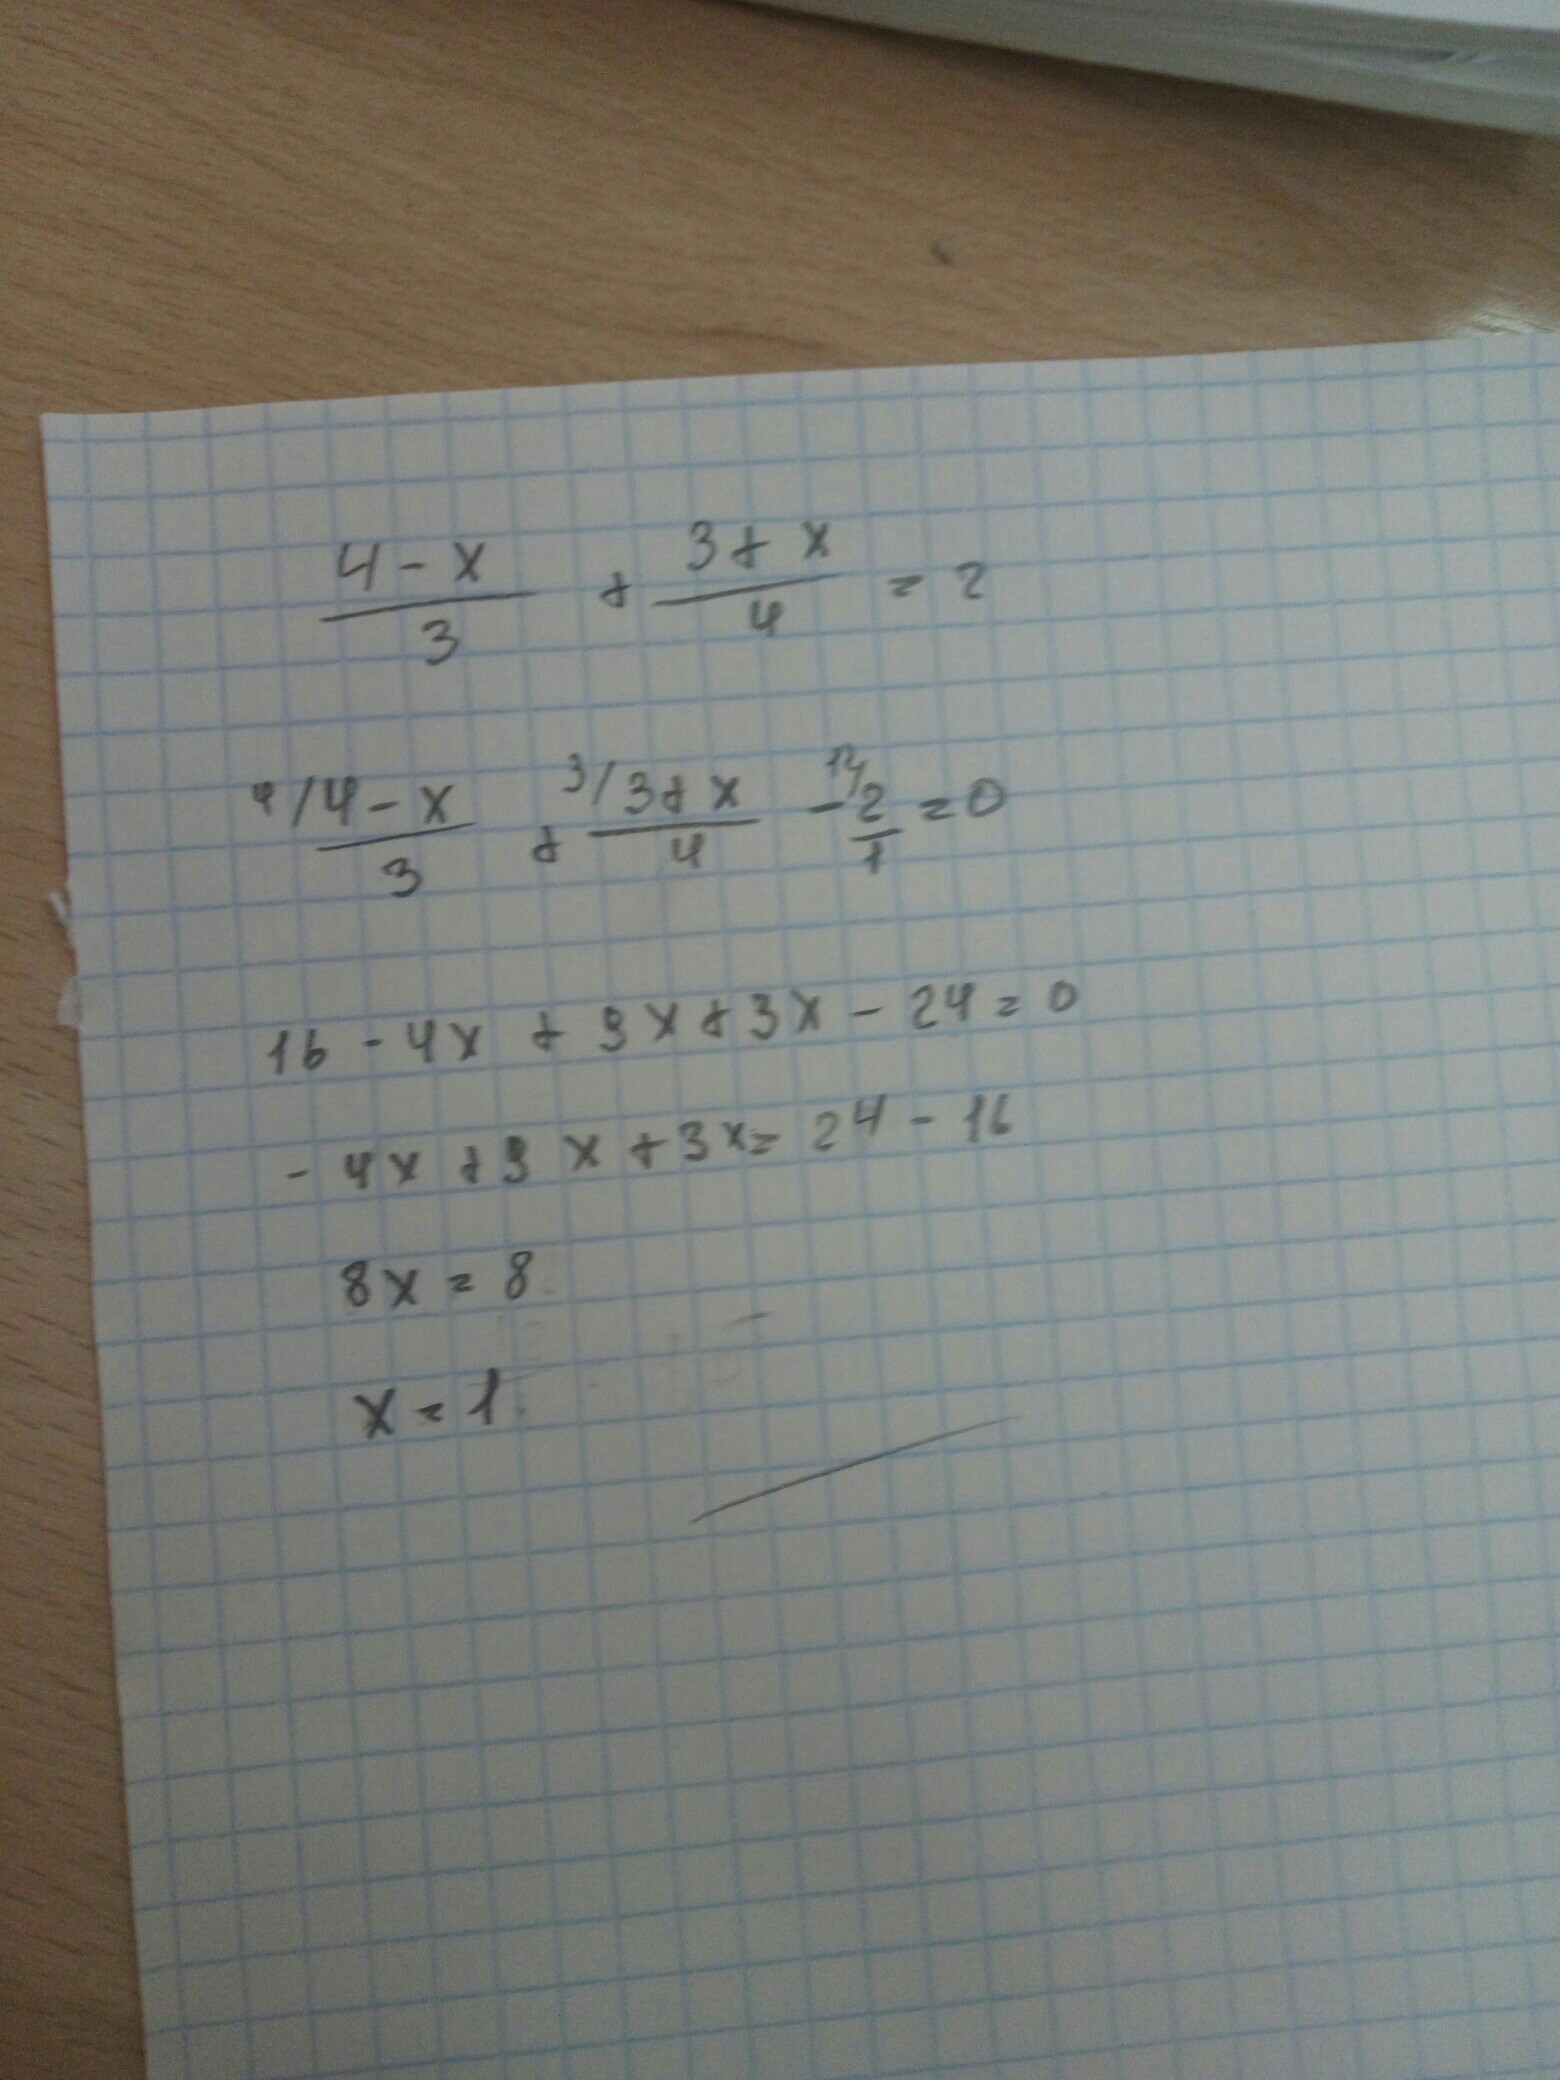 4 - x / 3 + 3 + x / 4 = 2
4/ 4 - x / 3 + 3/ 3 + x / 4 - 12/ 2 / 1 = 0
16 - 4x + 9x + 3x - 24 = 0
- 4x + 9x + 3x = 24 - 16
8x = 8
x = 1